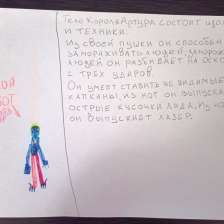 Тело Короля Артура состоит из
и техники.
Из своей пушки он способен
замораживать людей, заморож
людей он разбивает на оско
с трёх ударов.
Он умеет ставить не видимые
капканы, из ног он выпуска
острые кусочки льда, из но
он выпускает лазер.